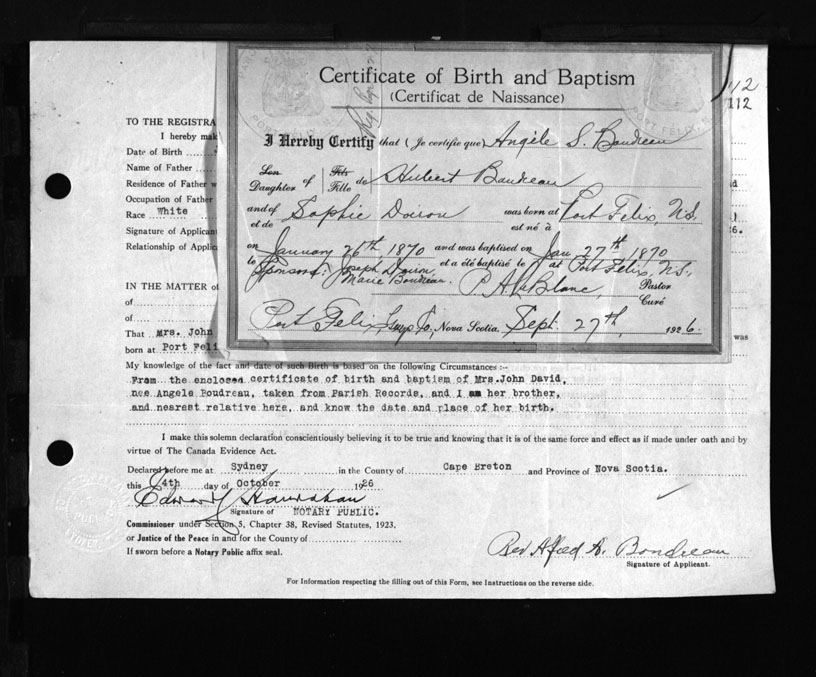 112
112
Certificate of Birth and Baptism
(Certificat de Naissance)
I Hereby Certify that (Je certifie que) Angèle S. Boudreau
Son
Daughter of Fils
Fille de Hubert Boudreau
and of
et de Sophie Doiron was born at
est né à Port Felix, N.S.
on
le January 26th, 1870 and was baptised on
et a été baptisé le Jan 27th 1870
at Port Felix, N.S.,
Sponsors: Joseph Doiron
Marie Boudreau. P. A. LeBlanc, Pastor
Curé
Port Felix, Guys Co, Nova Scotia. Sept. 27th, 1926.
TO THE REGISTRA
I hereby mak
Date of Birth
Name of Father
Residence of Father w
Occupation of Father
Race White
Signature of Applican
Relationship of Applic
IN THE MATTER of
of
of
That Mrs. John was
born at Port Feli
My knowledge of the fact and date of such Birth is based on the following Circumstances :-
From the enclosed certificate of birth and baptism of Mrs.John David,
nee Angele Boudreau, taken from Parish Records, and I am her brother,
and nearest relative here, and know the date and place of her birth.
I make this solemn declaration conscientiously believing it to be true and knowing that it is of the same force and effect as if made under oath and by
virtue of The Canada Evidence Act.
Declared before me at Sydney in the County of Cape Breton and Province of Nova Scotia.
this 4th day of October 1926
Signature of NOTARY PUBLIC.
Commissioner under Section 5, Chapter 38, Revised Statutes, 1923.
or Justice of the Peace in and for the County of
If sworn before a Notary Public affix seal.
Rev Alfred A. Boudreau
Signature of Applicant.
For Information respecting the filling out of this Form, see Instructions on the reverse side.